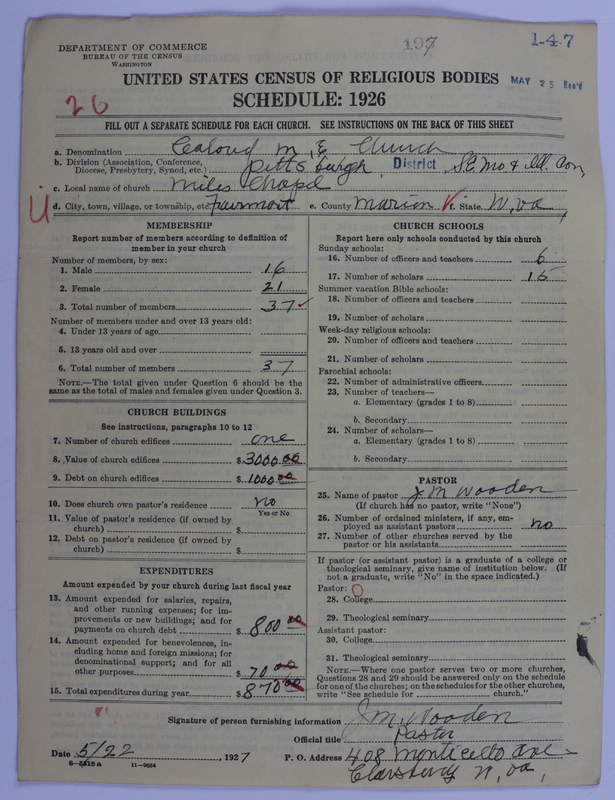 197
1-4-7
DEPARTMENT OF COMMERCE
BUREAU OF THE CENSUS
WASHINGTON
UNITED STATES CENSUS OF RELIGIOUS BODIES
MAY 25 Rec'd
SCHEDULE: 1926
26
FILL OUT A SEPARATE SCHEDULE FOR EACH CHURCH. SEE INSTRUCTIONS ON THE BACK OF THIS SHEET
a. Denomination Calourd M, E Church
b. Division (Association, Conference, Diocese, Presbytery, Synod, etc.) Pittsburgh, District, S.E. Mo & Ill. Con,
c. Local name of church Miles Chapel
U
d. City, town, village, or township, etc. Fairmont e. County Marion f. State W, va,
MEMBERSHIP
Report number of members according to definition of
member in your church
Number of members, by sex:
1. Male 16
2. Female 21
3. Total number of members 37
Number of members under and over 13 years old:
4. Under 13 years of age
5. 13 years old and over
6. Total number of members 37
NOTE.—The total given under Question 6 should be the
same as the total of males and females given under Question 3.
CHURCH BUILDINGS
See instructions, paragraphs 10 to 12
7. Number of church edifices one
8. Value of church edifices $3000.00
9. Debt on church edifices $1000.00
10. Does church own pastor's residence no
Yes or No
11. Value of pastor's residence (if owned by
church) $
12. Debt on pastor's residence (if owned by
church) $
EXPENDITURES
Amount expended by your church during last fiscal year
13. Amount expended for salaries, repairs,
and other running expenses; for im-
provements or new buildings; and for
payments on church debt $800.00
14. Amount expended for benevolences, in-
cluding home and foreign missions; for
denominational support; and for all
other purposes $70.00
15. Total expenditures during year $870.00
CHURCH SCHOOLS
Report here only schools conducted by this church
Sunday schools:
16. Number of officers and teachers 6
17. Number of scholars 15
Summer vacation Bible schools:
18. Number of officers and teachers
19. Number of scholars
Week-day religious schools:
20. Number of officers and teachers
21. Number of scholars
Parochial schools:
22. Number of administrative officers
23. Number of teachers—
a. Elementary (grades 1 to 8)
b. Secondary
24. Number of scholars—
a. Elementary (grades 1 to 8)
b. Secondary
PASTOR
25. Name of pastor J. M Wooden
(If church has no pastor, write "None")
26. Number of ordained ministers, if any, em-
ployed as assistant pastors no
27. Number of other churches served by the
pastor or his assistants
If pastor (or assistant pastor) is a graduate of a college or
theological seminary, give name of institution below. (If
not a graduate, write "No" in the space indicated.)
Pastor: O
28. College
29. Theological seminary
Assistant pastor:
30. College
31. Theological seminary
NOTE.—Where one pastor serves two or more churches,
Questions 28 and 29 should be answered only on the schedule
for one of the churches; on the schedules for the other churches,
write "See schedule for church."
Signature of person furnishing information J. M. Wooden
Official title Pastor
Date 5/22, 1927 P. O. Address 408 Monticello Ave
Clarsburg W, va,
8—5518 a 11—9694